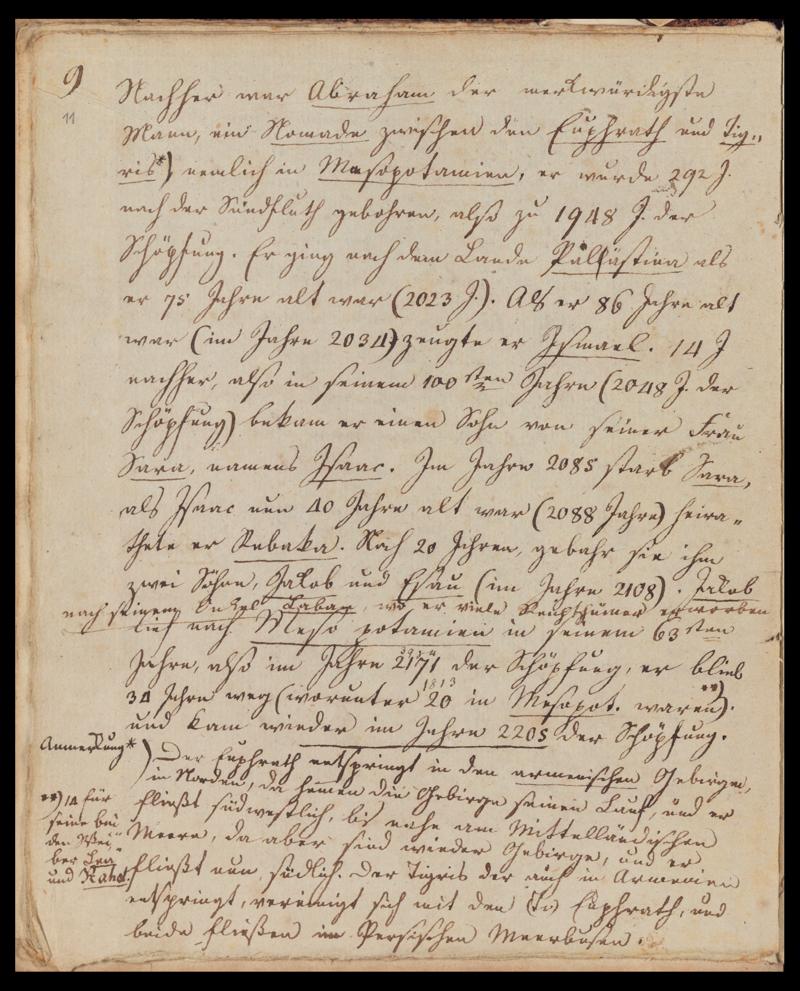 9
11
Nachher war Abraham der merkwürdigste
Mann, ein Nomade zwischen den Euphrath und Tig„
ris*) nemlich in Mesopotamien, er wurde 292 J.
nach der Sündfluth gebohren, also zu 1948 J. der
Schöpfung. Er ging nach dem Lande Palästina als
er 75 Jahre alt war (2023 J.). Als er 86 Jahre alt
war (im Jahre 2034) zeugte er Ismael. 14 J
nachher, also in seinem 100sten Jahre (2048 J. der
Schöpfung) bekam er einen Sohn von seiner Frau
Sara, namens Isaac. Im Jahre 2085 starb Sara,
als Isaac nun 40 Jahre alt war (2088 Jahre) heira„
thete er Rebaka. Nach 20 Jahren, gebahr sie ihm
zwei Söhne, Jakob und Esau (im Jahre 2108). Jakob
nach seinem Onkel Laban, wo er viele Reichthümer erworben
lief nach Mesopotamien in seinem 63sten
Jahre, also im Jahre 2171 der Schöpfung, er blieb
34 Jahre weg (worunter 20 in Mesopot. waren**).
und kam wieder im Jahre 2205 der Schöpfung.
Anmerkung*) Der Euphrath entspringt in den armenischen Gebirgen,
in Norden, da hemen die Gebirge seinen Lauf, und er
fließt südwestlich, bis nahe am Mittelländischen
Meere, da aber sind wieder Gebirge, und er
fließt nun südlich. Der Tigris der auch in Armenien
entspringt, vereinigt sich mit den Euphrath, und
beide fließen im Persischen Meerbusen.
**) 14 für
seine bei„
den Wei„
ber Lea
und Rahel